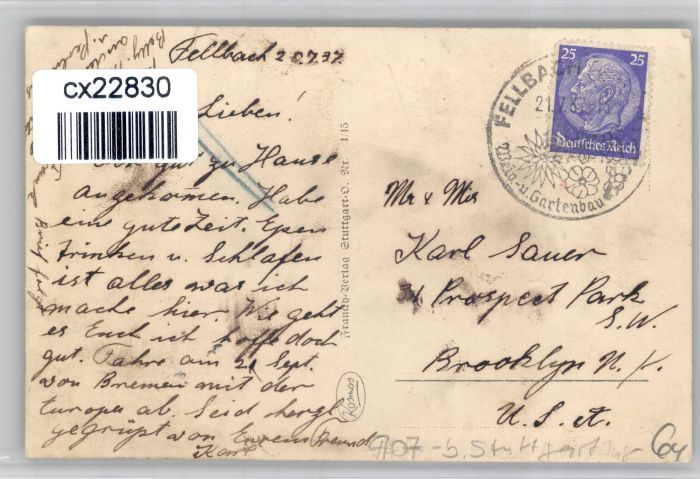 Fellbach 20.7.37
cx22830
Lieben!
gut zu Hause
angekommen. Habe
eine gute Zeit. Epen
trinken u. Schlafen
ist alles was ich
mache hier. Wie geht
es Euch ich hoffe doch
gut. Fahre am 21 Sept.
von Bremen mit der
Europa ab. Seid herzl.
gegrüpt von Eurem Freund
Karl
Brief folgt
Franckh-Verlag Stuttgart-O. Nr. 1/15
Kosmos
FELLBACH
21.7.37
Wein- u. Gartenbau
25 25
Deutsches Reich
Mr & Mrs
Karl Sauer
34 Prospect Park
S.W.
Brooklyn N.Y.
U.S.A.
7107 - b. Stuttgart